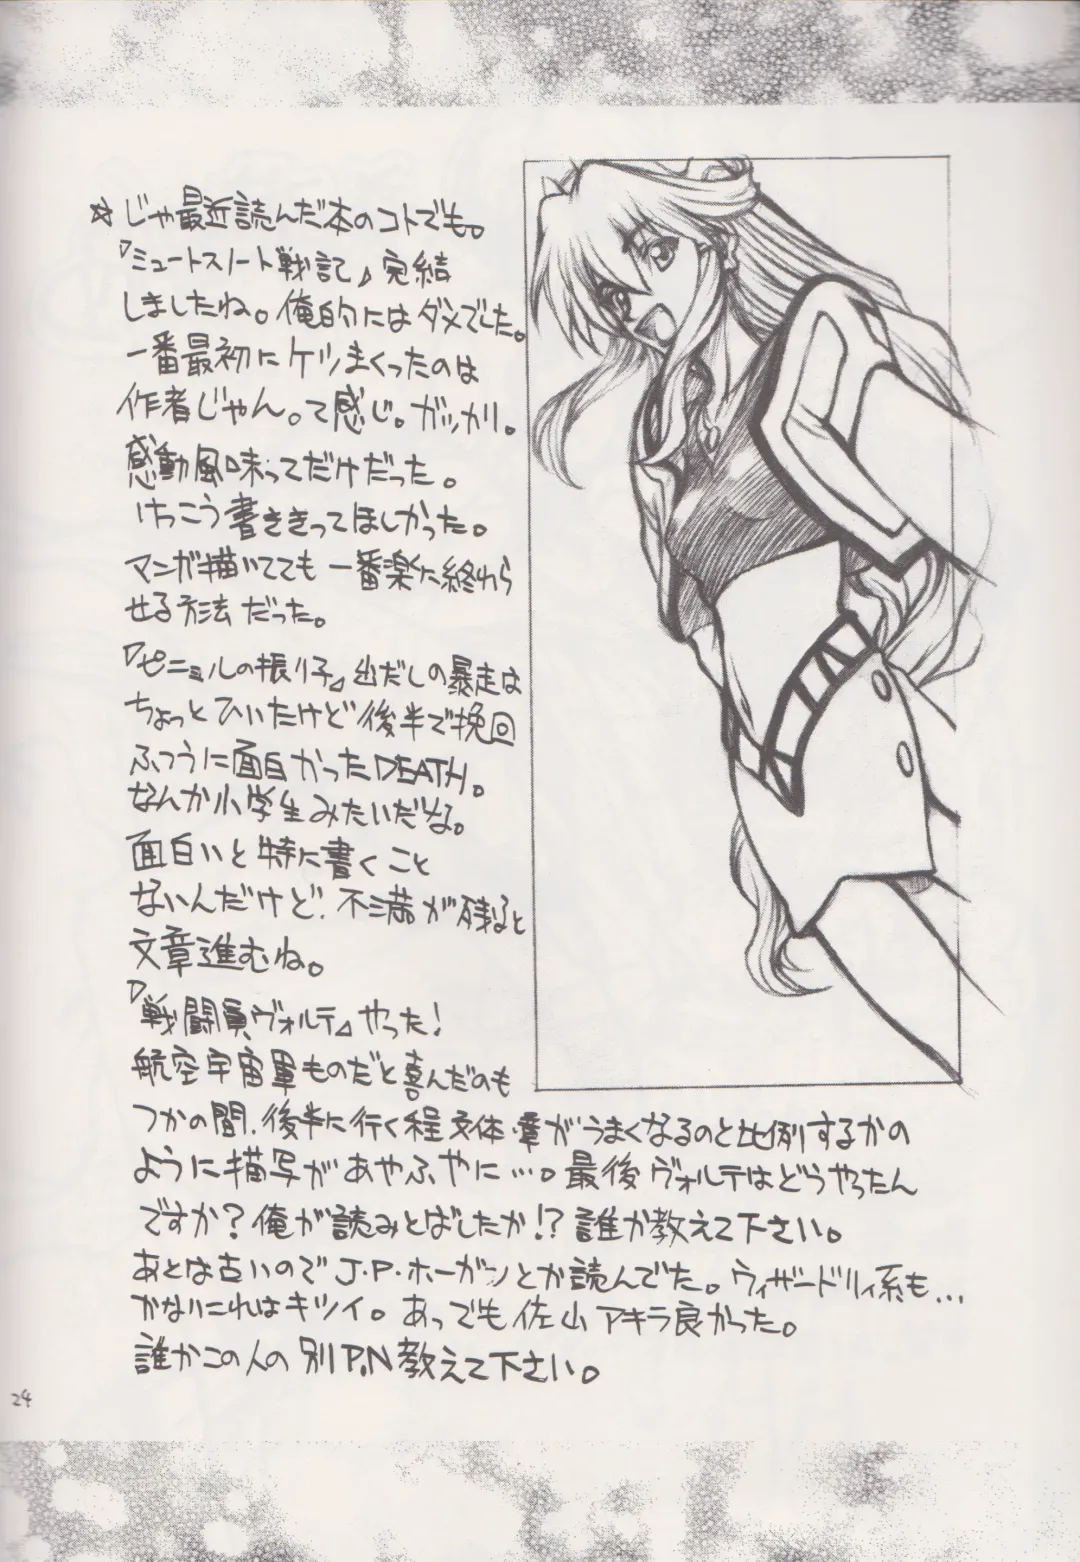 ☆じゃ最近読んだ本のコトでも。
『ミュートスノート戦記』完結
しましたね。俺的にはダメでした。
一番最初にケツまくったのは
作者じゃん。て感じ。ガッカリ。
感動風味ってだけだった。
けっこう書ききってほしかった。
マンガ描いてても一番楽な終わら
せる方法だった。
『ピニェルの振り子』出だしの暴走は
ちょっとひいたけど後半で挽回
ふつうに面白かったDEATH。
なんか小学生みたいだな。
面白いと特に書くこと
ないんだけど、不満が残ると
文章進むね。
『戦闘員ヴォルテ』やった!
航空宇宙軍ものだと喜んだのも
つかの間、後半に行く程文体・章がうまくなるのと比例するかの
ように描写があやふやに…。最後ヴォルテはどうやったん
ですか?俺が読みとばしたか!?誰か教えて下さい。
あとは古いのでJ.P.ホーガンとか読んでた。ウィザードリィ系も…
かなりこれはキツイ。あっでも佐山アキラ良かった。
誰かこの人の別P.N教えて下さい。
24